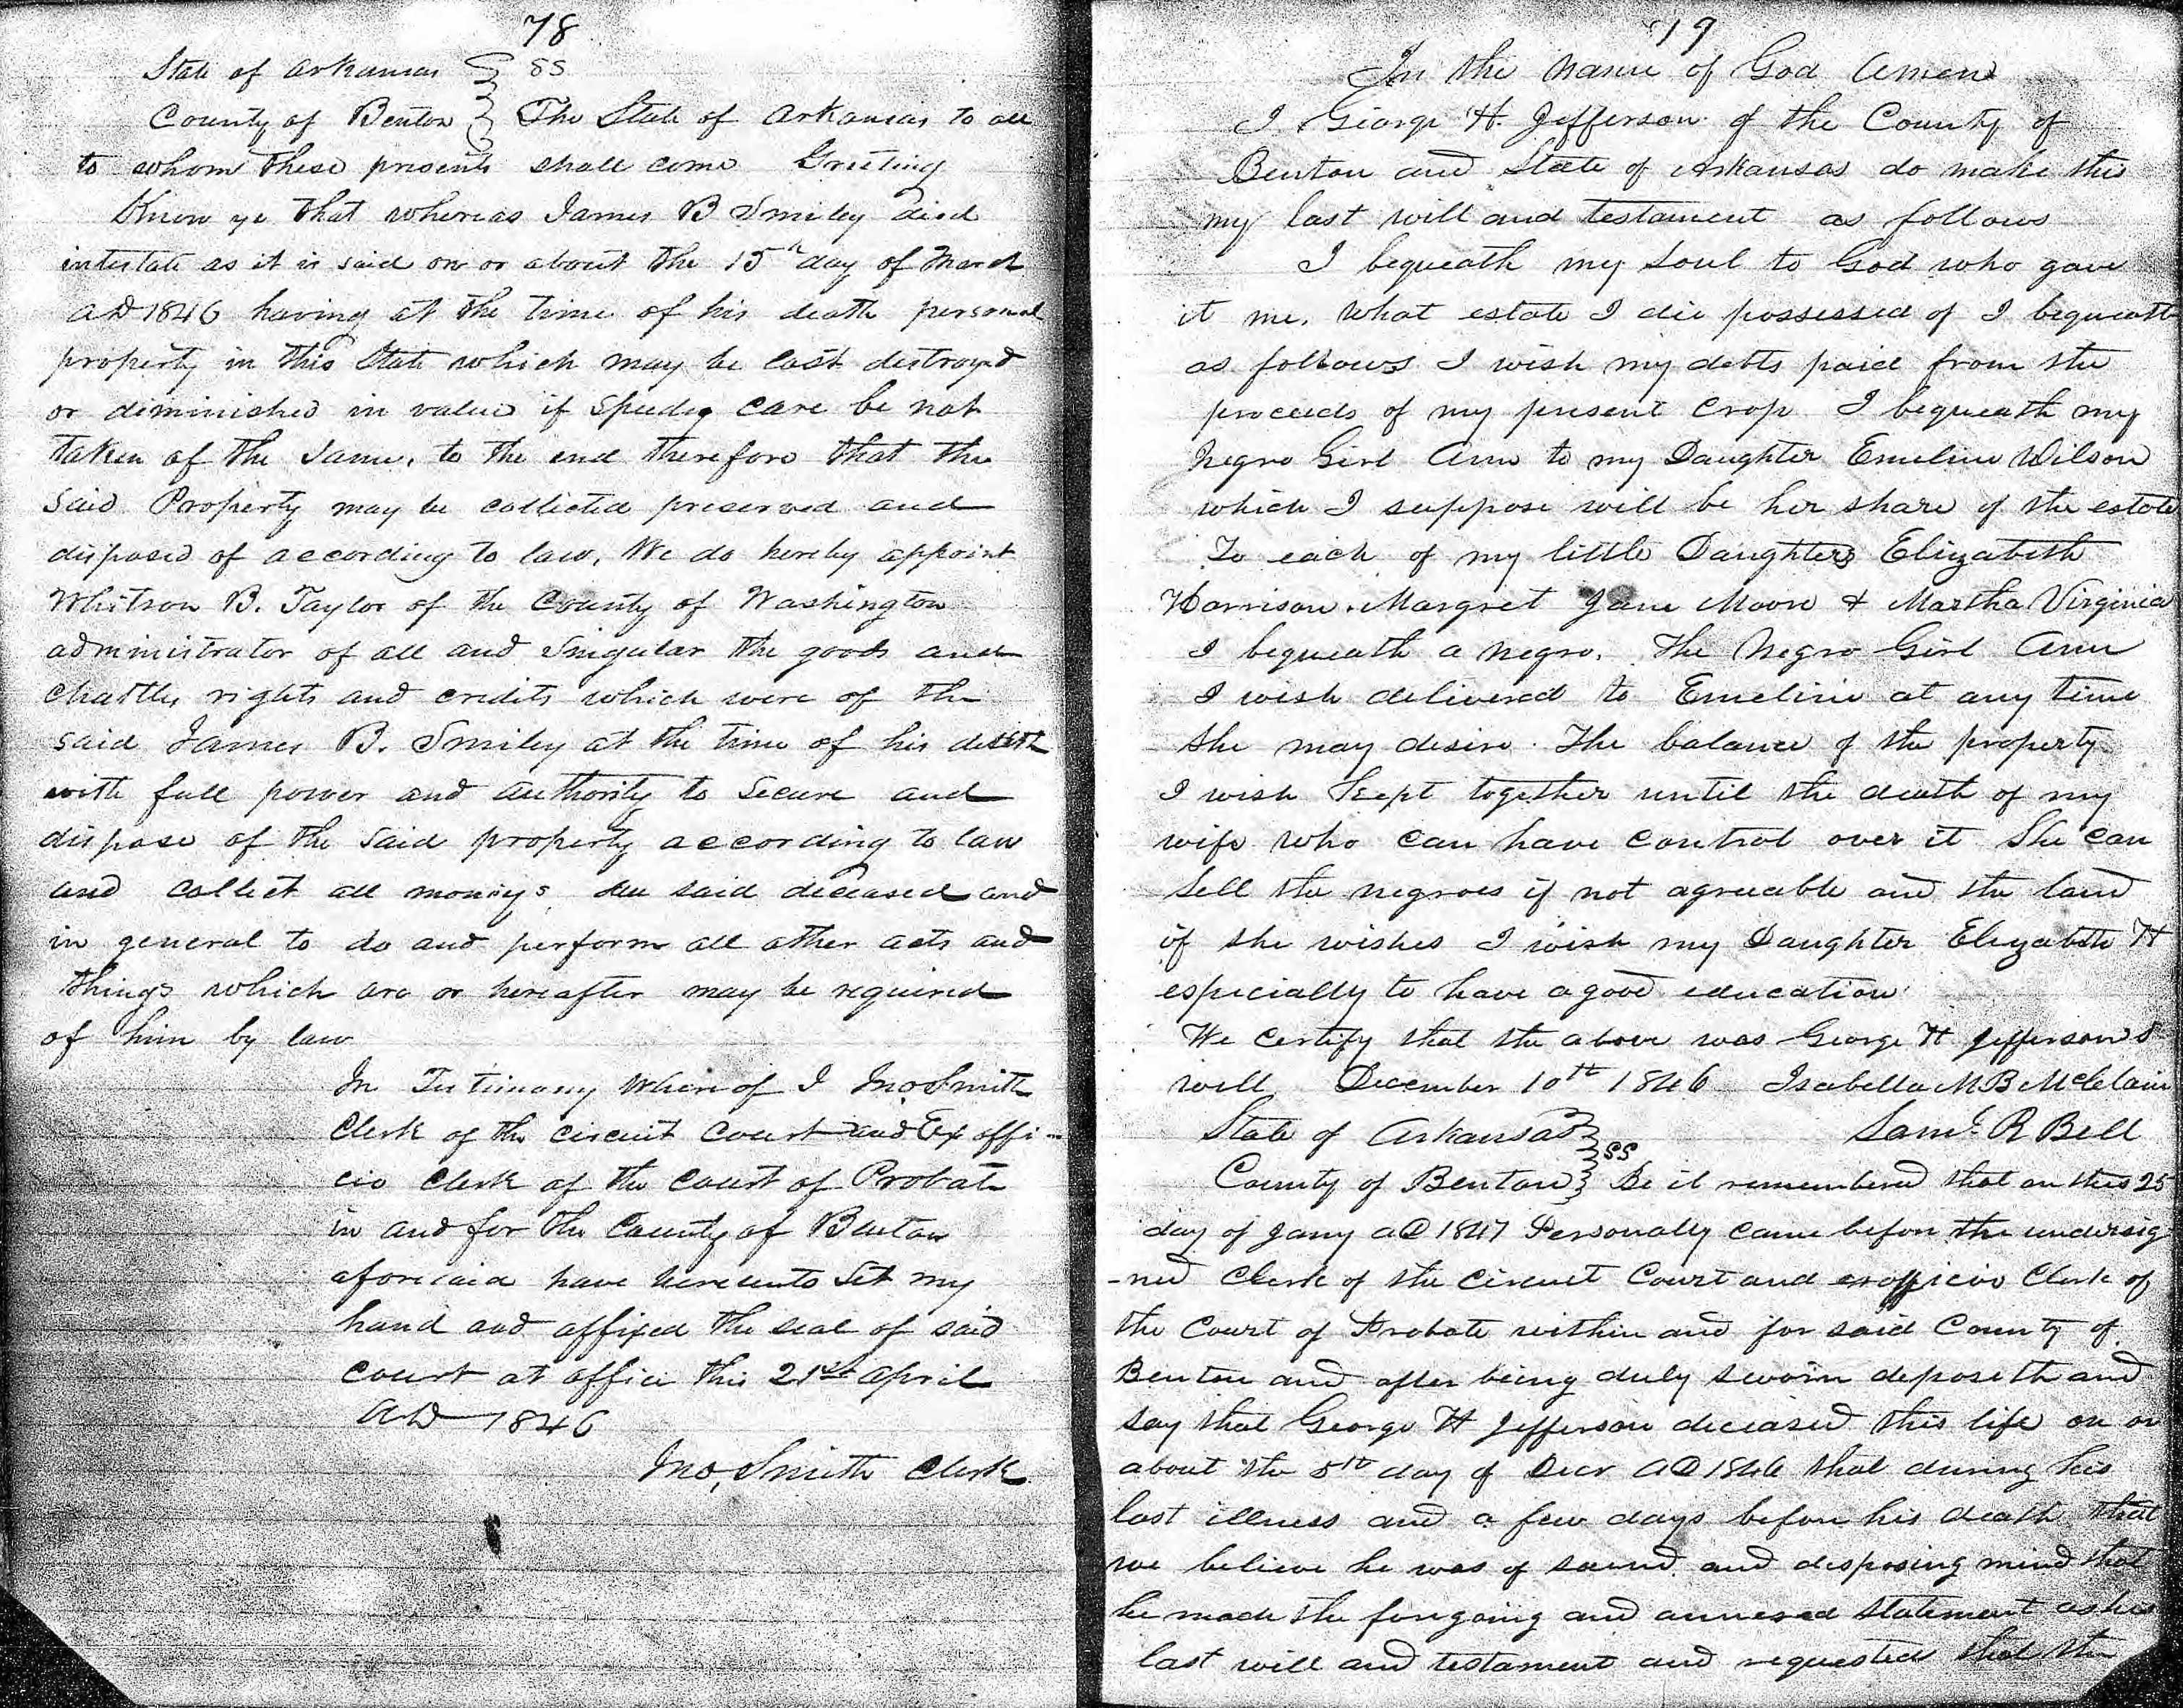 78
State of Arkansas } SS
County of Benton } The State of Arkansas to all
to whom these presents shall come Greeting
Know ye that whereas James B Smiley died
intestate as it is said on or about the 15th day of March
AD 1846 having at the time of his death personal
property in this State which may be lost destroyd
or diminished in value if speedy care be not
taken of the same, to the end therefore that the
said Property may be collected preserved and
disposed of according to law, We do hereby appoint
Whitson B. Taylor of the County of Washington
administrator of all and singular the goods and
chattles, rights and credits which were of the
said James B. Smiley at the time of his death
with full power and authority to secure and
dispose of the said property according to law
and collect all moneys due said deceased and
in general to do and perform all other acts and
things which are or hereafter may be required
of him by law
In Testimony Whereof I Jno Smith
Clerk of the circuit court and Ex offi-
cio clerk of the court of Probate
in and for the County of Benton
aforesaid have hereunto set my
hand and affixed the seal of said
court at office this 21st April
AD 1846
Jno, Smith Clerk
19
In the Name of God Amen
I George H. Jefferson of the County of
Benton and State of Arkansas do make this
my last will and testament as follows
I bequeath my soul to God who gave
it me. What estate I die possessed of I bequeath
as follows I wish my debts paid from the
proceeds of my present crop I bequeath my
Negro Girl Ann to my Daughter Emeline Wilson
which I suppose will be her share of the estate
To each of my little Daughters Elizabeth
Harrison. Margret Jane Moore & Martha Virginia
I bequeath a negro. The Negro Girl Ann
I wish delivered to Emeline at any time
she may desire. The balance of the property
I wish Kept together until the death of my
wife who can have control over it She can
sell the negroes if not agreeable and the land
if she wishes I wish my Daughter Elizabeth H
especially to have a good education
We certify that the above was George H Jeffersons
will December 10th 1846 Isabella M B McClain
State of Arkansas } SS Saml R Bell
County of Benton } Be it remembered that on this 25
day of Jany AD 1847 Personally came before the undersig
-ned Clerk of the Circuit Court and exofficio Clerk of
the Court of Probate within and for said County of
Benton and after being duly sworn deposeth and
say that George H Jefferson deceased this life on or
about the 5th day of Decr AD 1846 that during his
last illness and a few days before his death that
we believe he was of sound and disposing mind that
he made the foregoing and annexed statement as his
last will and testament and requested that the